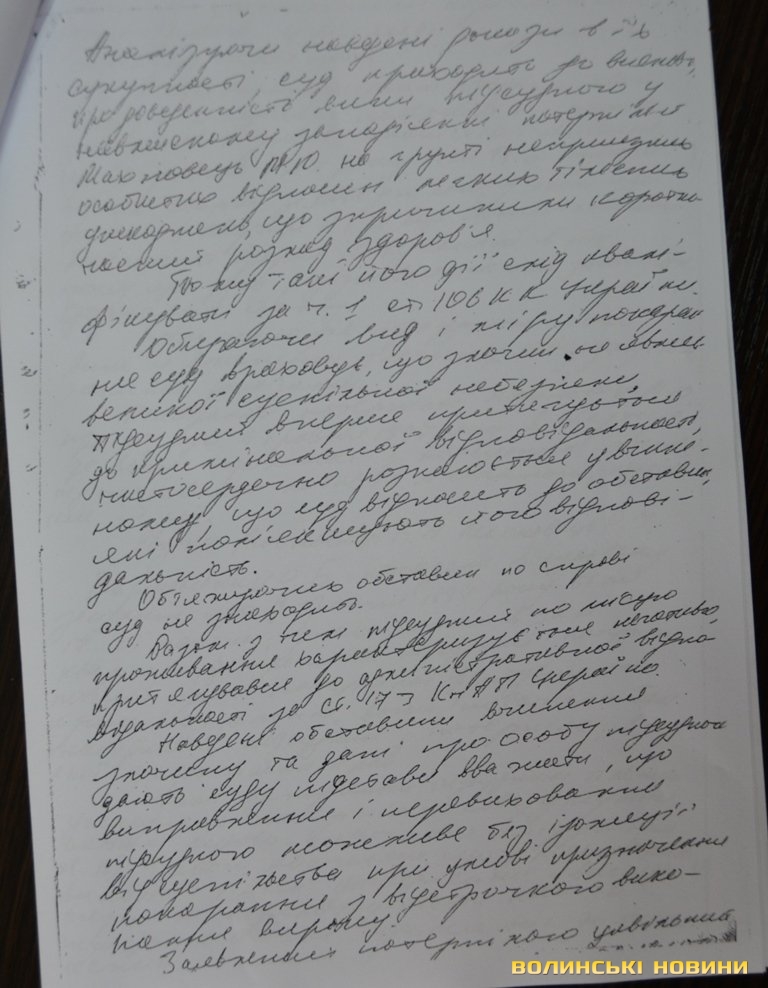 Аналізуючи наведені докази в їх
сукупності, суд приходить до висновку
про доведеність вини підсудного у
навмисному заподіянні потерпілій
на грунті неприязних
особистих відносин легких тілесних
ушкоджень, що спричинили коротко-
часний розлад здоров'я.
Тому такі його дії слід квалі-
фікувати за ч. 1 ст. 106 КК України.
Обираючи вид і міру покаран-
ня суд враховує, що злочин не являє
великої суспільної небезпеки,
підсудний вперше притягується
до кримінальної відповідальності,
чистосердечно розкаюється у вчине-
ному, що суд відносить до обставин,
які пом'якшують його відпові-
дальність.
Обтяжуючих обставин по справі
суд не знаходить.
Разом з тим підсудний по місцю
проживання характеризується негативно
притягувався до адміністративної відпо-
відальності за ст. 173 КпАП України.
Наведені обставини вчинення
злочину та дані про особу підсудного
дають суду підстави вважати, що
виправлення і перевиховання
підсудного можливе без ізоляції
від суспільства при умові призначення
покарання з відстрочкою вико-
нання вироку.
Заявлений потерпілою цивільний
ВОЛИНСЬКІ НОВИНИ